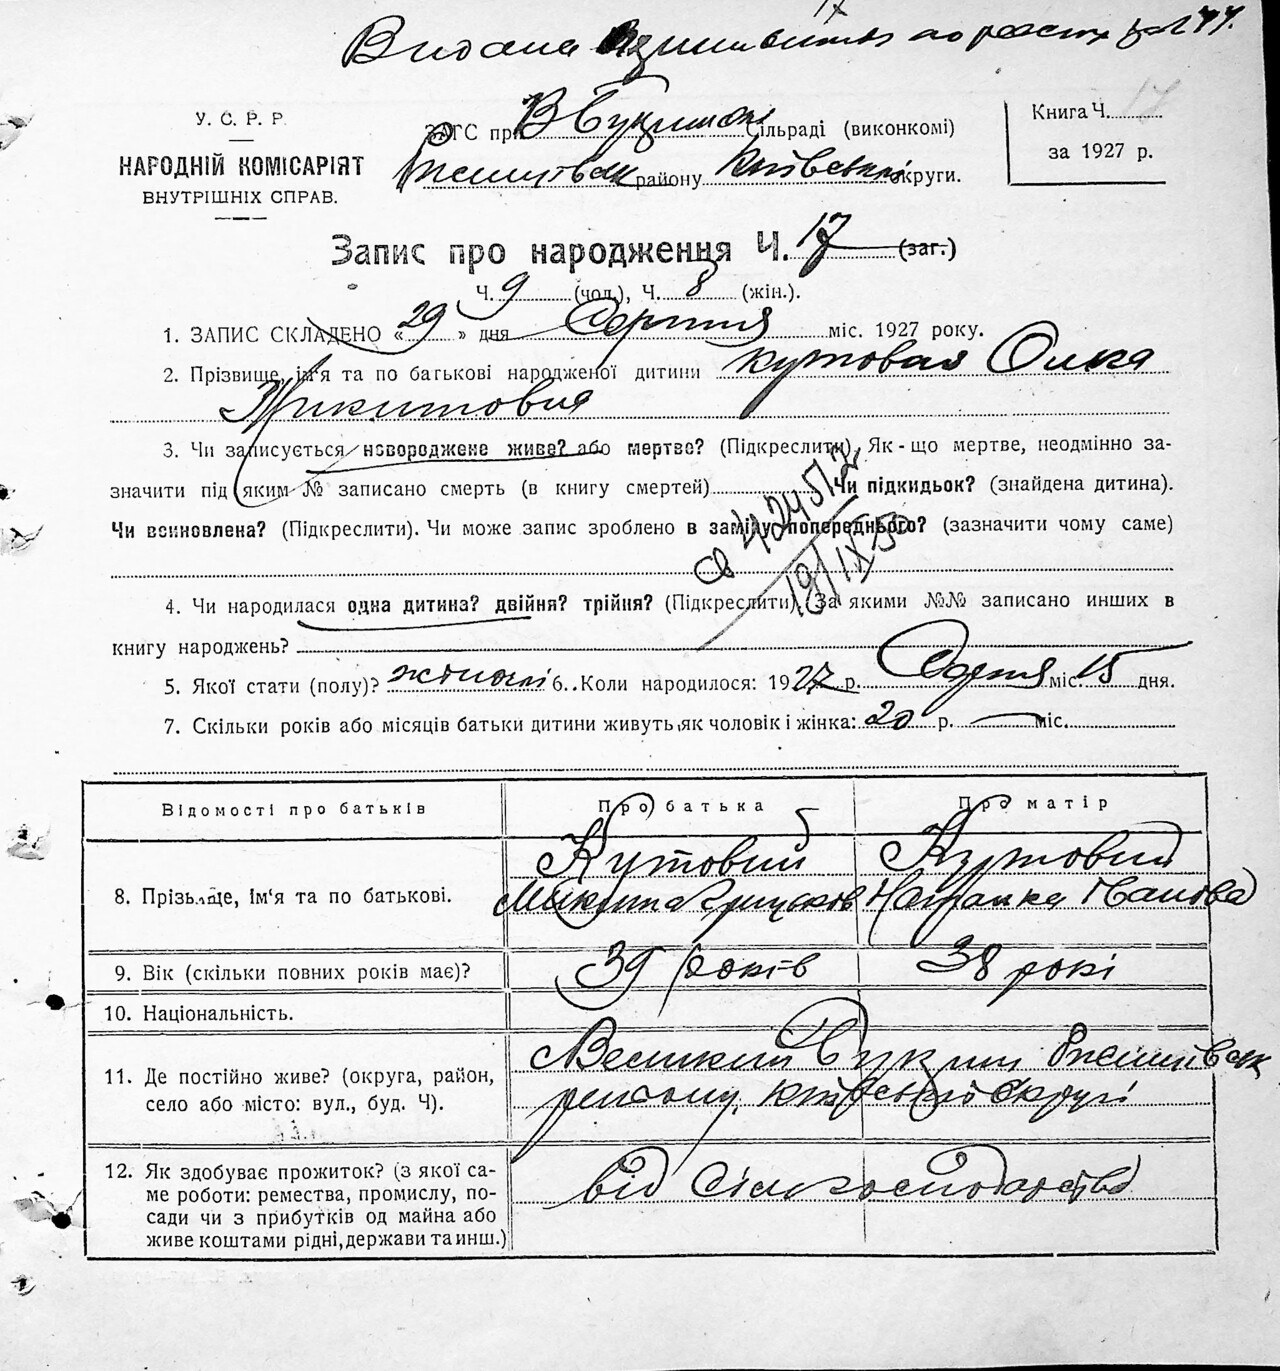 Видана
У. С. Р. Р.
НАРОДНІЙ КОМІСАРІЯТ
ВНУТРІШНІХ СПРАВ.
ЗАГС при В Букринські Сільраді (виконкомі)
району Київської округи.
Книга Ч. 17
за 1927 р.
Запис про народження Ч. 17 (заг.)
Ч. 9 (чол.), Ч. 8 (жін.).
1. ЗАПИС СКЛАДЕНО « 29 » дня Серпня міс. 1927 року.
2. Прізвище, ім'я та по батькові народженої дитини Кутовая
Микитовна
3. Чи записується новороджене живе? або мертве? (Підкреслити). Як-що мертве, неодмінно за-
значити під яким № записано смерть (в книгу смертей) Чи підкидьок? (знайдена дитина).
Чи всиновлена? (Підкреслити). Чи може запис зроблено в заміну попереднього? (зазначити чому саме)
св 424512
19/IX 50
4. Чи народилася одна дитина? двійня? трійня? (Підкреслити). За якими №№ записано инших в
книгу народжень?
5. Якої стати (полу)? жіночої 6. Коли народилося: 1927 р. Серпня міс. 15 дня.
7. Скільки років або місяців батьки дитини живуть як чоловік і жінка: 20 р. — міс.
Відомості про батьків Про батька Про матір
8. Прізьвище, ім'я та по батькові. Кутовий Кутовий
Микита Грицьков Іванова
9. Вік (скільки повних років має)? 39 років 38 рокі
10. Національність.
11. Де постійно живе? (округа, район,
село або місто: вул., буд. Ч). Великий Букрин Ржищівськ
району Київської Округі
12. Як здобуває прожиток? (з якої са-
ме роботи: ремества, промислу, по-
сади чи з прибутків од майна або
живе коштами рідні, держави та инш.)
від Сільгосподарства